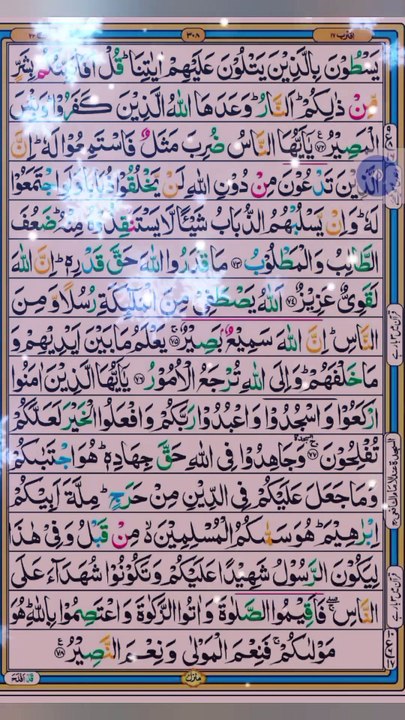 اقترب ١٧
٣٠٨
يَسْطُوْنَ بِالَّذِيْنَ يَتْلُوْنَ عَلَيْهِمْ اٰيٰتِنَا ؕ قُلْ اَفَاُنَبِّئُكُمْ بِشَرٍّ
مِّنْ ذٰلِكُمْ ؕ اَلنَّارُ ؕ وَعَدَهَا اللّٰهُ الَّذِيْنَ كَفَرُوْا ؕ وَبِئْسَ
الْمَصِيْرُ ﴿٧٢﴾ يٰۤاَيُّهَا النَّاسُ ضُرِبَ مَثَلٌ فَاسْتَمِعُوْا لَهٗ ؕ اِنَّ
الَّذِيْنَ تَدْعُوْنَ مِنْ دُوْنِ اللّٰهِ لَنْ يَّخْلُقُوْا ذُبَابًا وَّلَوِ اجْتَمَعُوْا
لَهٗ ؕ وَاِنْ يَّسْلُبْهُمُ الذُّبَابُ شَيْـًٔا لَّا يَسْتَنْقِذُوْهُ مِنْهُ ؕ ضَعُفَ
الطَّالِبُ وَالْمَطْلُوْبُ ﴿٧٣﴾ مَا قَدَرُوا اللّٰهَ حَقَّ قَدْرِهٖ ؕ اِنَّ اللّٰهَ
لَقَوِيٌّ عَزِيْزٌ ﴿٧٤﴾ اَللّٰهُ يَصْطَفِيْ مِنَ الْمَلٰٓئِكَةِ رُسُلًا وَّمِنَ
النَّاسِ ؕ اِنَّ اللّٰهَ سَمِيْعٌۢ بَصِيْرٌ ﴿٧٥﴾ يَعْلَمُ مَا بَيْنَ اَيْدِيْهِمْ وَ
مَا خَلْفَهُمْ ؕ وَاِلَى اللّٰهِ تُرْجَعُ الْاُمُوْرُ ﴿٧٦﴾ يٰۤاَيُّهَا الَّذِيْنَ اٰمَنُوا
ارْكَعُوْا وَاسْجُدُوْا وَاعْبُدُوْا رَبَّكُمْ وَافْعَلُوا الْخَيْرَ لَعَلَّكُمْ
تُفْلِحُوْنَ ﴿٧٧﴾ وَجَاهِدُوْا فِي اللّٰهِ حَقَّ جِهَادِهٖ ؕ هُوَ اجْتَبٰىكُمْ
وَمَا جَعَلَ عَلَيْكُمْ فِي الدِّيْنِ مِنْ حَرَجٍ ؕ مِلَّةَ اَبِيْكُمْ
اِبْرٰهِيْمَ ؕ هُوَ سَمّٰىكُمُ الْمُسْلِمِيْنَ ۙ مِنْ قَبْلُ وَفِيْ هٰذَا
لِيَكُوْنَ الرَّسُوْلُ شَهِيْدًا عَلَيْكُمْ وَتَكُوْنُوْا شُهَدَآءَ عَلَى
النَّاسِ ۖ فَاَقِيْمُوا الصَّلٰوةَ وَاٰتُوا الزَّكٰوةَ وَاعْتَصِمُوْا بِاللّٰهِ ؕ هُوَ
مَوْلٰىكُمْ ۚ فَنِعْمَ الْمَوْلٰى وَنِعْمَ النَّصِيْرُ ﴿٧٨﴾
منزل
قَدْ اَفْلَحَ